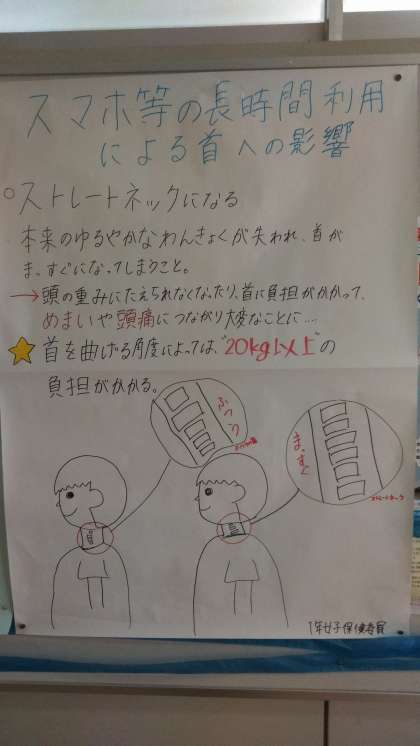 スマホ等の長時間利用
による首への影響
○ストレートネックになる
本来のゆるやかなわんきょくが失われ、首が
まっすぐになってしまうこと。
→頭の重みにたえられなくなったり、首に負担がかかって、
めまいや頭痛につながり大変なことに…
首を曲げる角度によっては、"20kg以上"の
負担がかかる。
ふつう
まっすぐ
1年女子保健委員